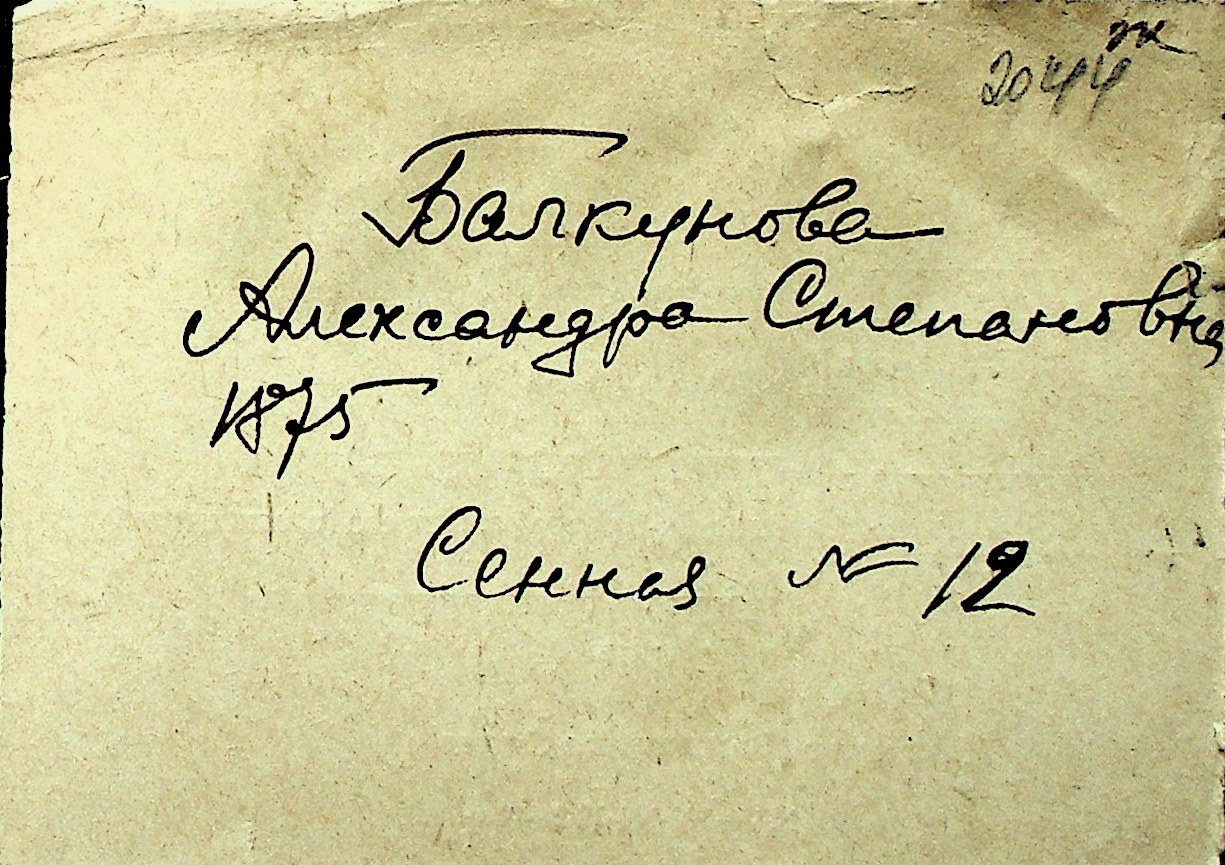 ж
2044
Балкунова
Александра Степановна
1875
Сенная № 12